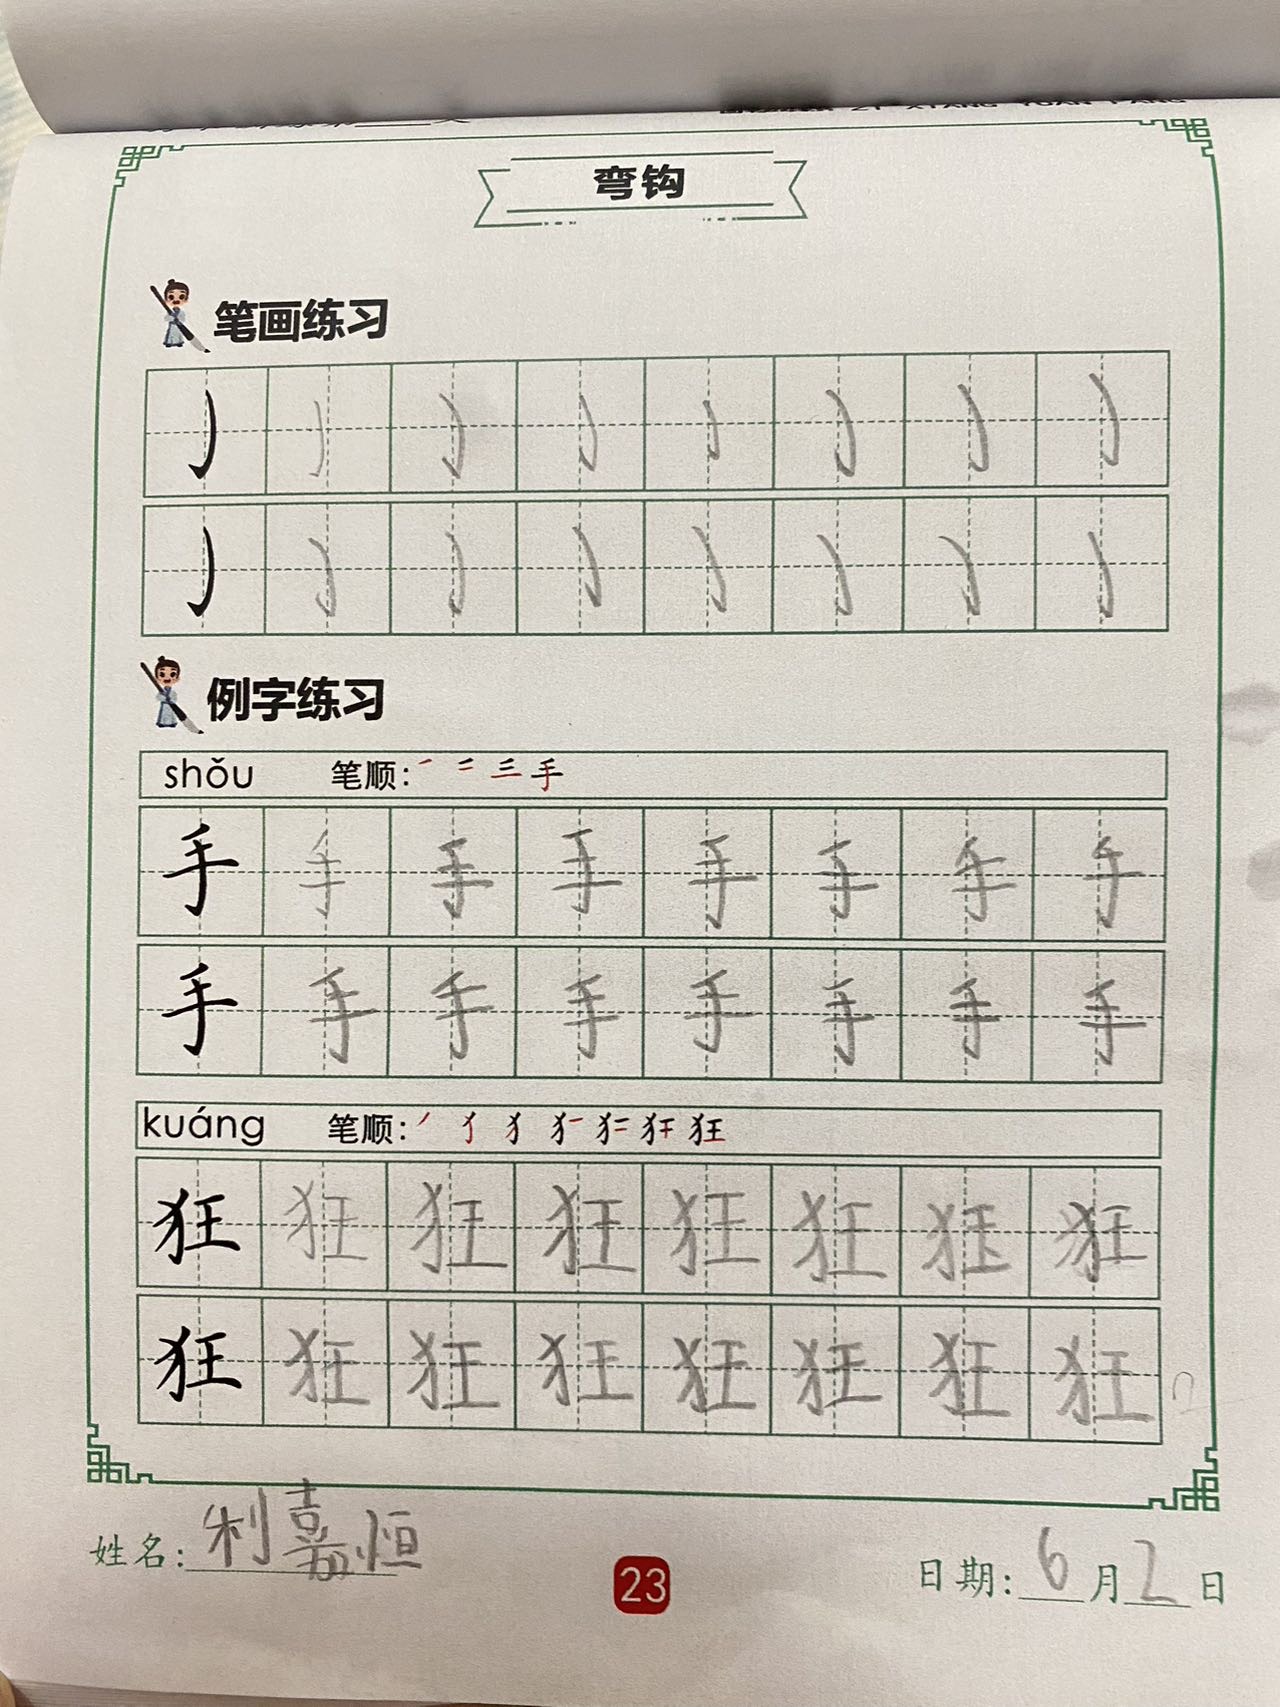 弯钩
笔画练习
例字练习
shǒu 笔顺: 手
手 手 手 手 手 手 手 手
手 手 手 手 手 手 手 手
kuáng 笔顺: 狂
狂 狂 狂 狂 狂 狂 狂 狂
狂 狂 狂 狂 狂 狂 狂 狂
姓名: 利嘉恒
23
日期: 6月2日